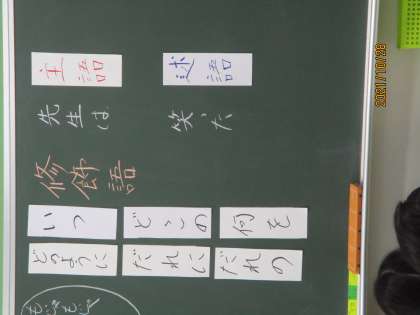 主語
述語
先生は
笑った
修飾語
いつ
どこの
何を
どのように
だれに
だれの
2021/10/28